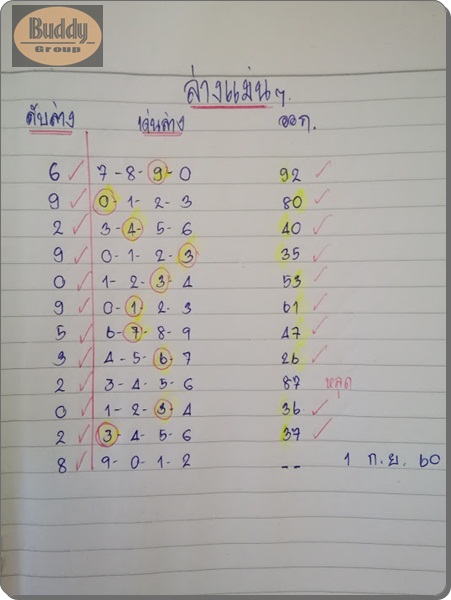 Buddy
Group
ล่างแม่นๆ
ดับล่าง เด่นล่าง ออก.
6 7-8-9-0 92
9 0-1-2-3 80
2 3-4-5-6 40
9 0-1-2-3 35
0 1-2-3-4 53
9 0-1-2-3 61
5 6-7-8-9 47
3 4-5-6-7 26
2 3-4-5-6 87 หลุด
0 1-2-3-4 36
2 3-4-5-6 37
8 9-0-1-2 -- 1 ก.ย. 60